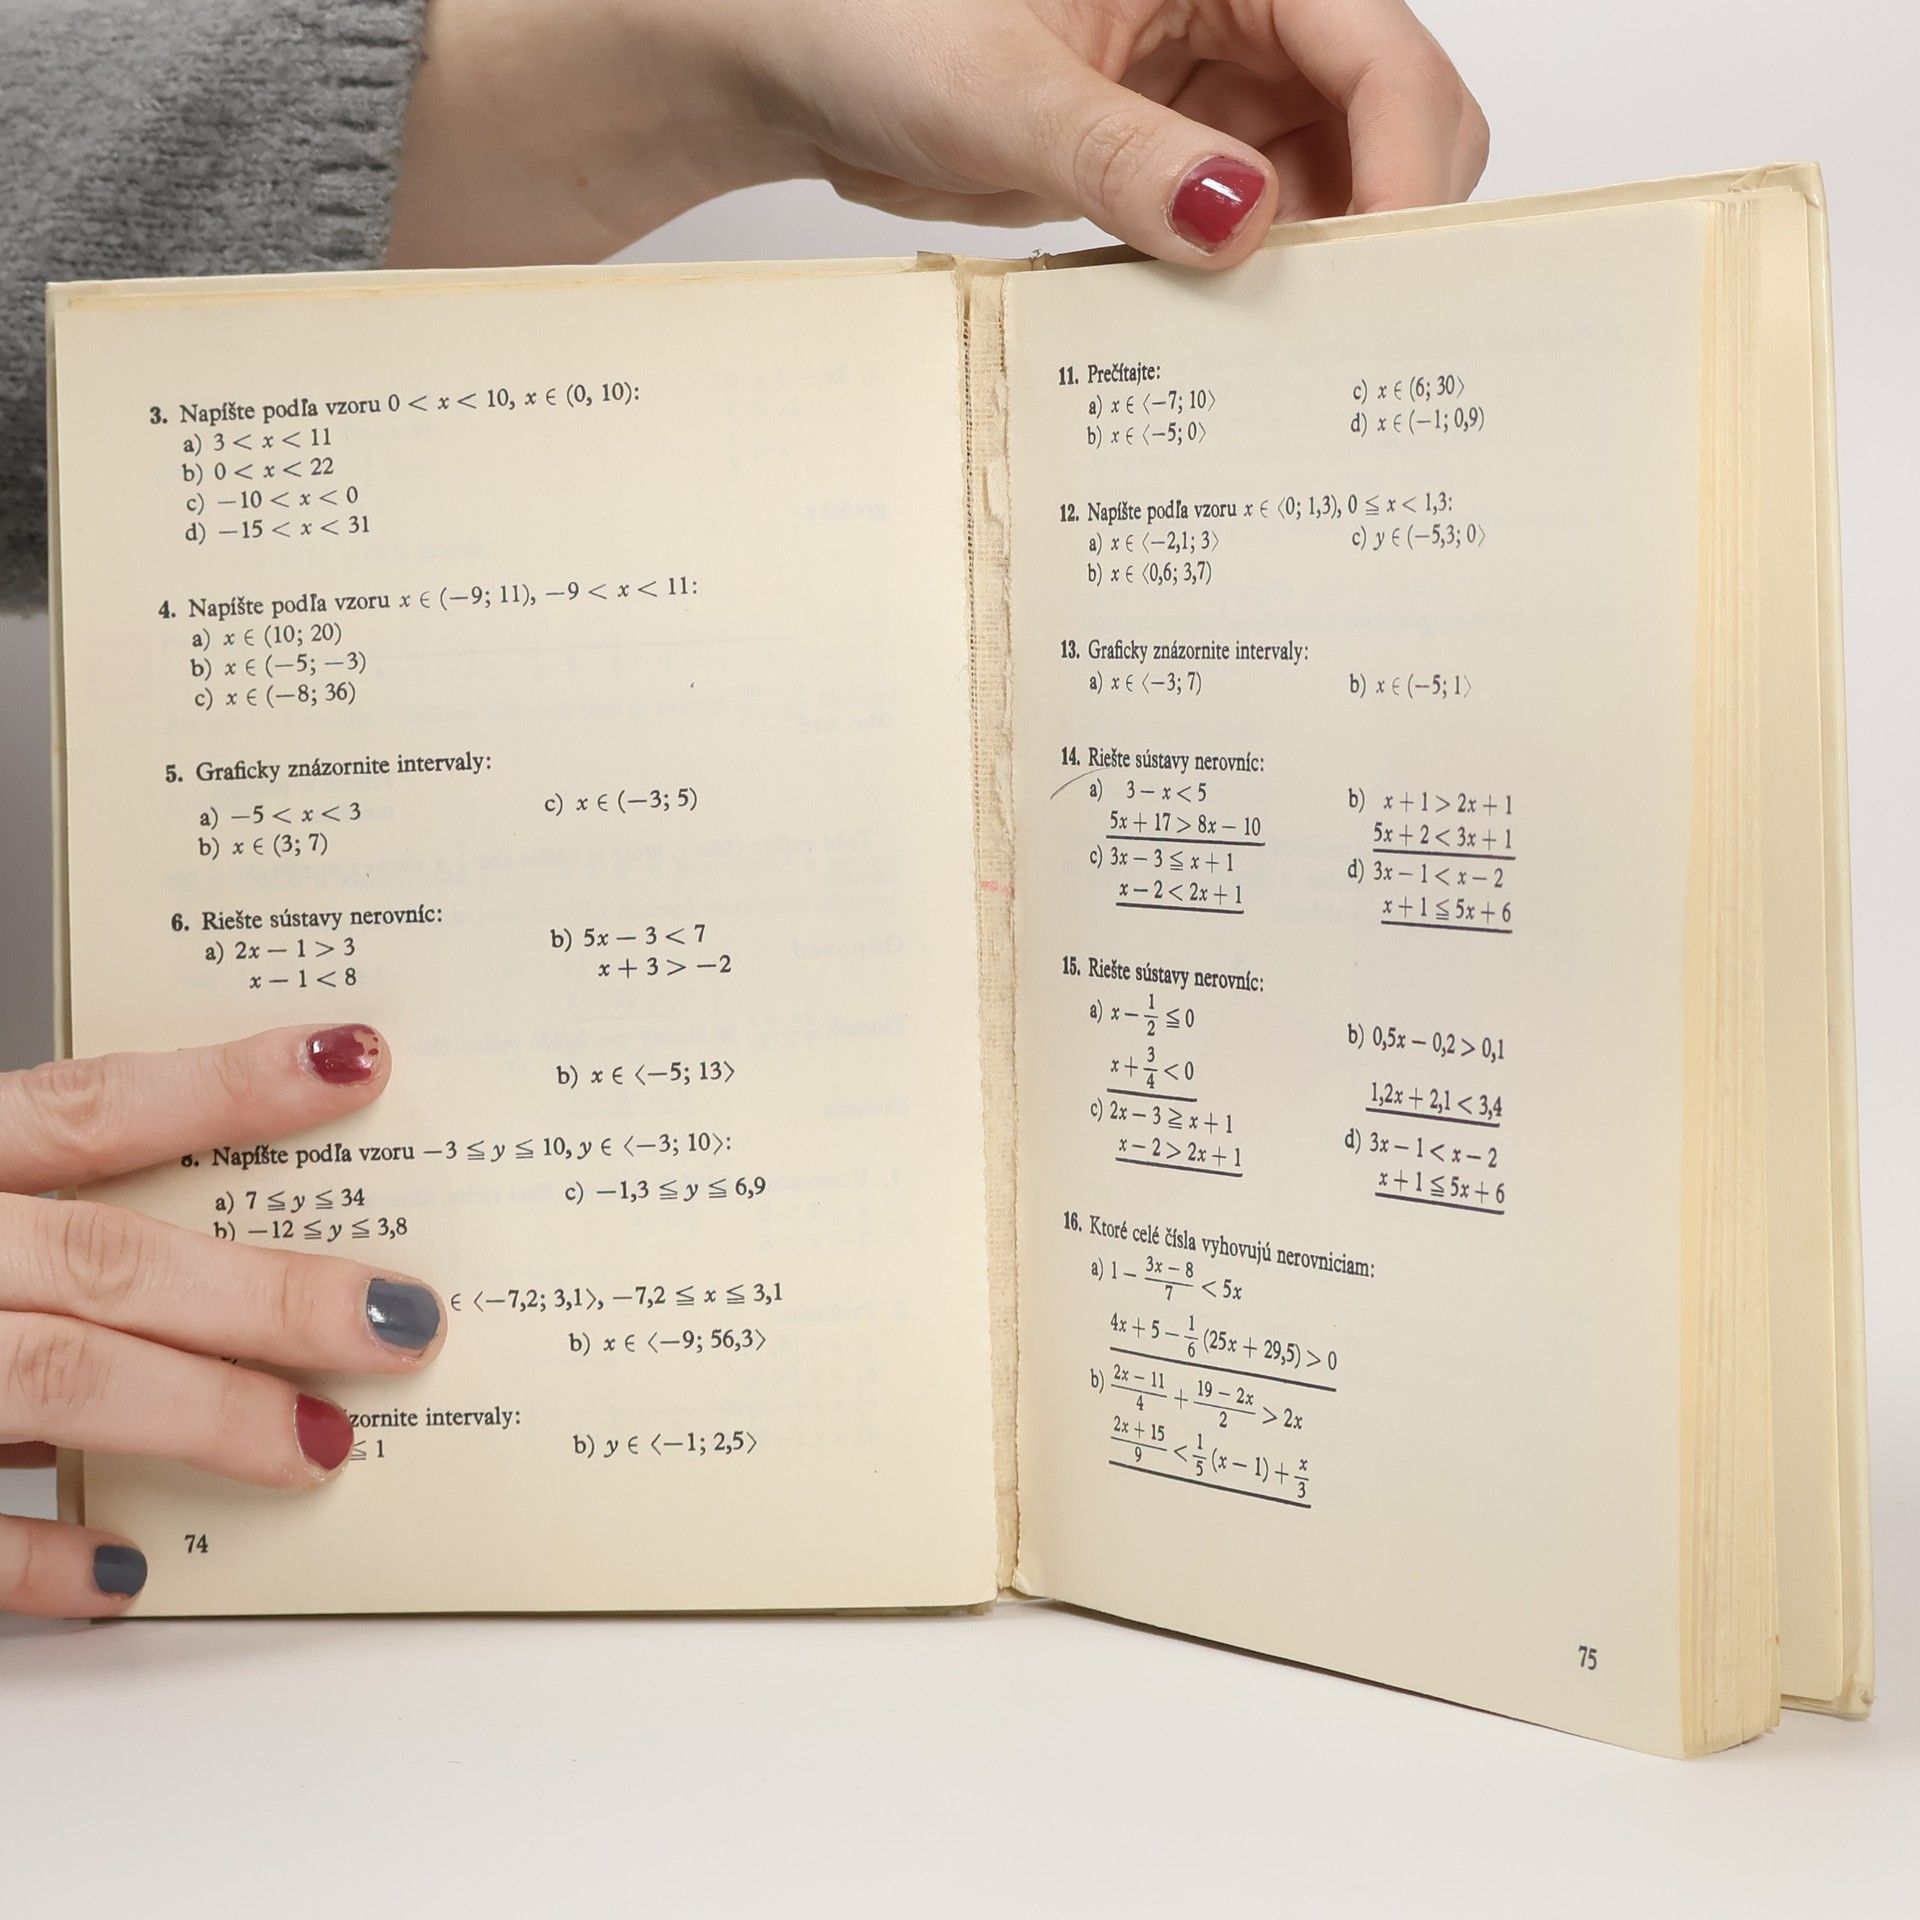 3. Napíšte podľa vzoru 0 < x < 10, x ∈ (0, 10):
a) 3 < x < 11
b) 0 < x < 22
c) −10 < x < 0
d) −15 < x < 31
4. Napíšte podľa vzoru x ∈ (−9; 11), −9 < x < 11:
a) x ∈ (10; 20)
b) x ∈ (−5; −3)
c) x ∈ (−8; 36)
5. Graficky znázornite intervaly:
a) −5 < x < 3
c) x ∈ (−3; 5)
b) x ∈ (3; 7)
6. Riešte sústavy nerovníc:
a) 2x − 1 > 3
x − 1 < 8
b) 5x − 3 < 7
x + 3 > −2
b) x ∈ ⟨−5; 13⟩
8. Napíšte podľa vzoru −3 ≦ y ≦ 10, y ∈ ⟨−3; 10⟩:
a) 7 ≦ y ≦ 34
c) −1,3 ≦ y ≦ 6,9
b) −12 ≦ y ≦ 3,8
∈ ⟨−7,2; 3,1⟩, −7,2 ≦ x ≦ 3,1
b) x ∈ ⟨−9; 56,3⟩
zornite intervaly:
≦ 1
b) y ∈ ⟨−1; 2,5⟩
74
11. Prečítajte:
a) x ∈ ⟨−7; 10⟩
c) x ∈ (6; 30⟩
b) x ∈ ⟨−5; 0⟩
d) x ∈ (−1; 0,9)
12. Napíšte podľa vzoru x ∈ ⟨0; 1,3), 0 ≦ x < 1,3:
a) x ∈ ⟨−2,1; 3⟩
c) y ∈ (−5,3; 0⟩
b) x ∈ ⟨0,6; 3,7)
13. Graficky znázornite intervaly:
a) x ∈ ⟨−3; 7)
b) x ∈ (−5; 1⟩
14. Riešte sústavy nerovníc:
a) 3 − x < 5
5x + 17 > 8x − 10
b) x + 1 > 2x + 1
5x + 2 < 3x + 1
c) 3x − 3 ≦ x + 1
x − 2 < 2x + 1
d) 3x − 1 < x − 2
x + 1 ≦ 5x + 6
15. Riešte sústavy nerovníc:
a) x − 1/2 ≦ 0
x + 3/4 < 0
b) 0,5x − 0,2 > 0,1
1,2x + 2,1 < 3,4
c) 2x − 3 ≧ x + 1
x − 2 > 2x + 1
d) 3x − 1 < x − 2
x + 1 ≦ 5x + 6
16. Ktoré celé čísla vyhovujú nerovniciam:
a) 1 − (3x − 8)/7 < 5x
4x + 5 − 1/6 (25x + 29,5) > 0
b) (2x − 11)/4 + (19 − 2x)/2 > 2x
(2x + 15)/9 < 1/5 (x − 1) + x/3
75